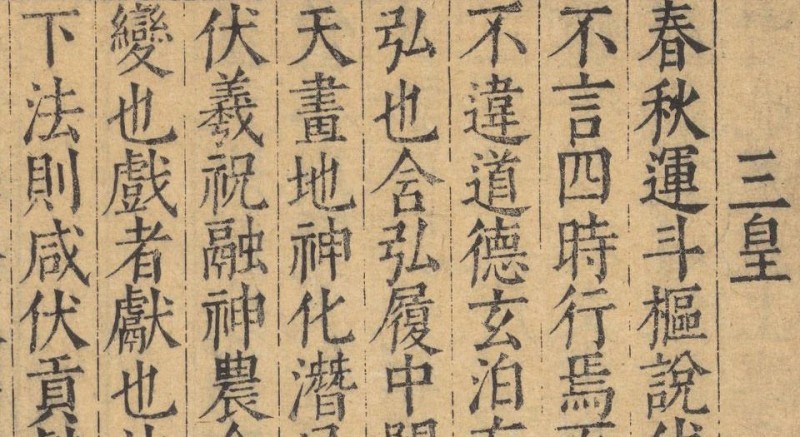 三皇
春秋運斗樞說
不言四時行焉
不違道德玄泊
弘也含弘履中
天畫地神化潛
伏羲祝融神農
變也戲者獻也
下法則咸伏貢